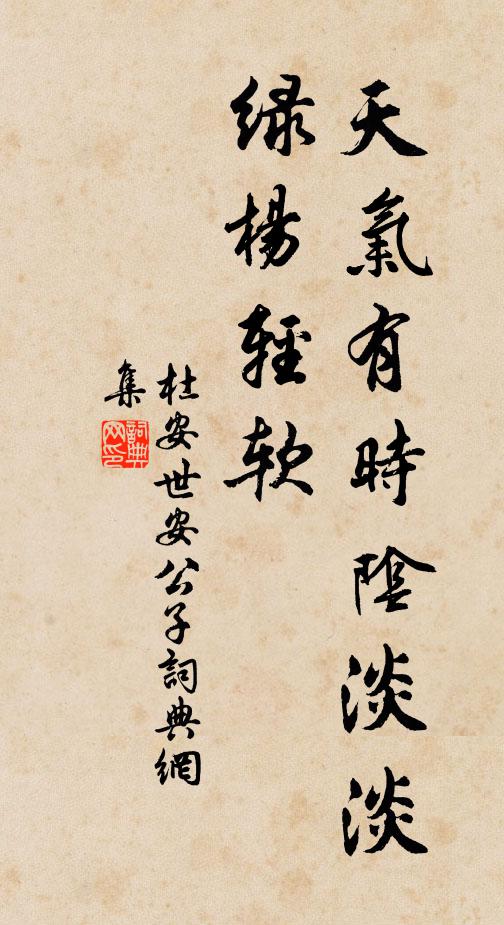 天氣有時陰淡淡
綠楊輕軟
杜安世安公子詞典網
集
詞典
网印